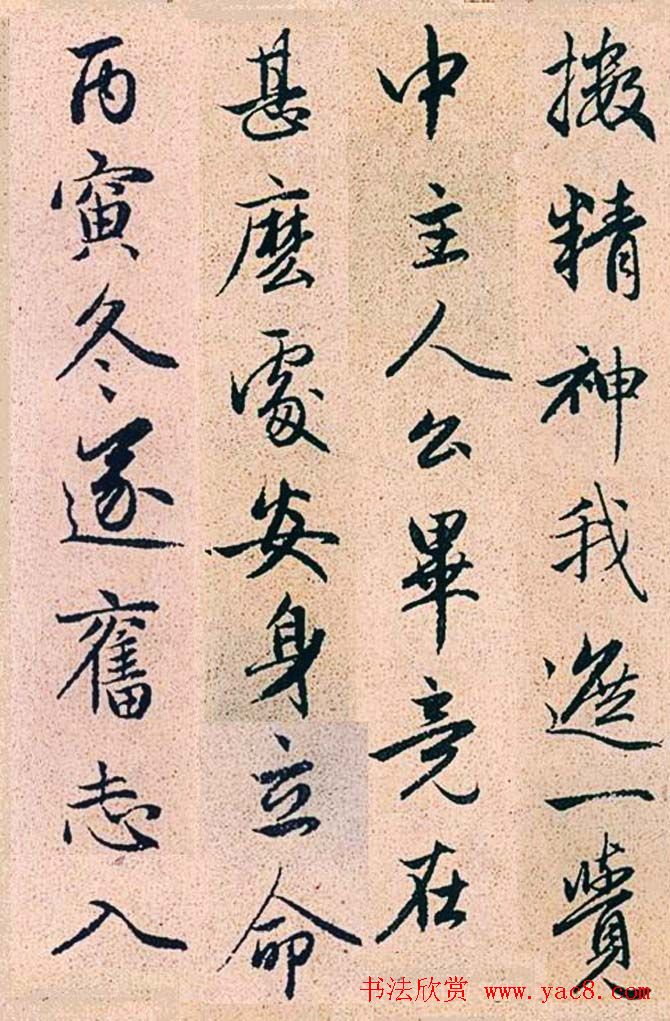 擻精神我遮一覺
中主人公畢竟在
甚麼處安身立命
丙寅冬遂奮志入
书法欣赏 www.yac8.com